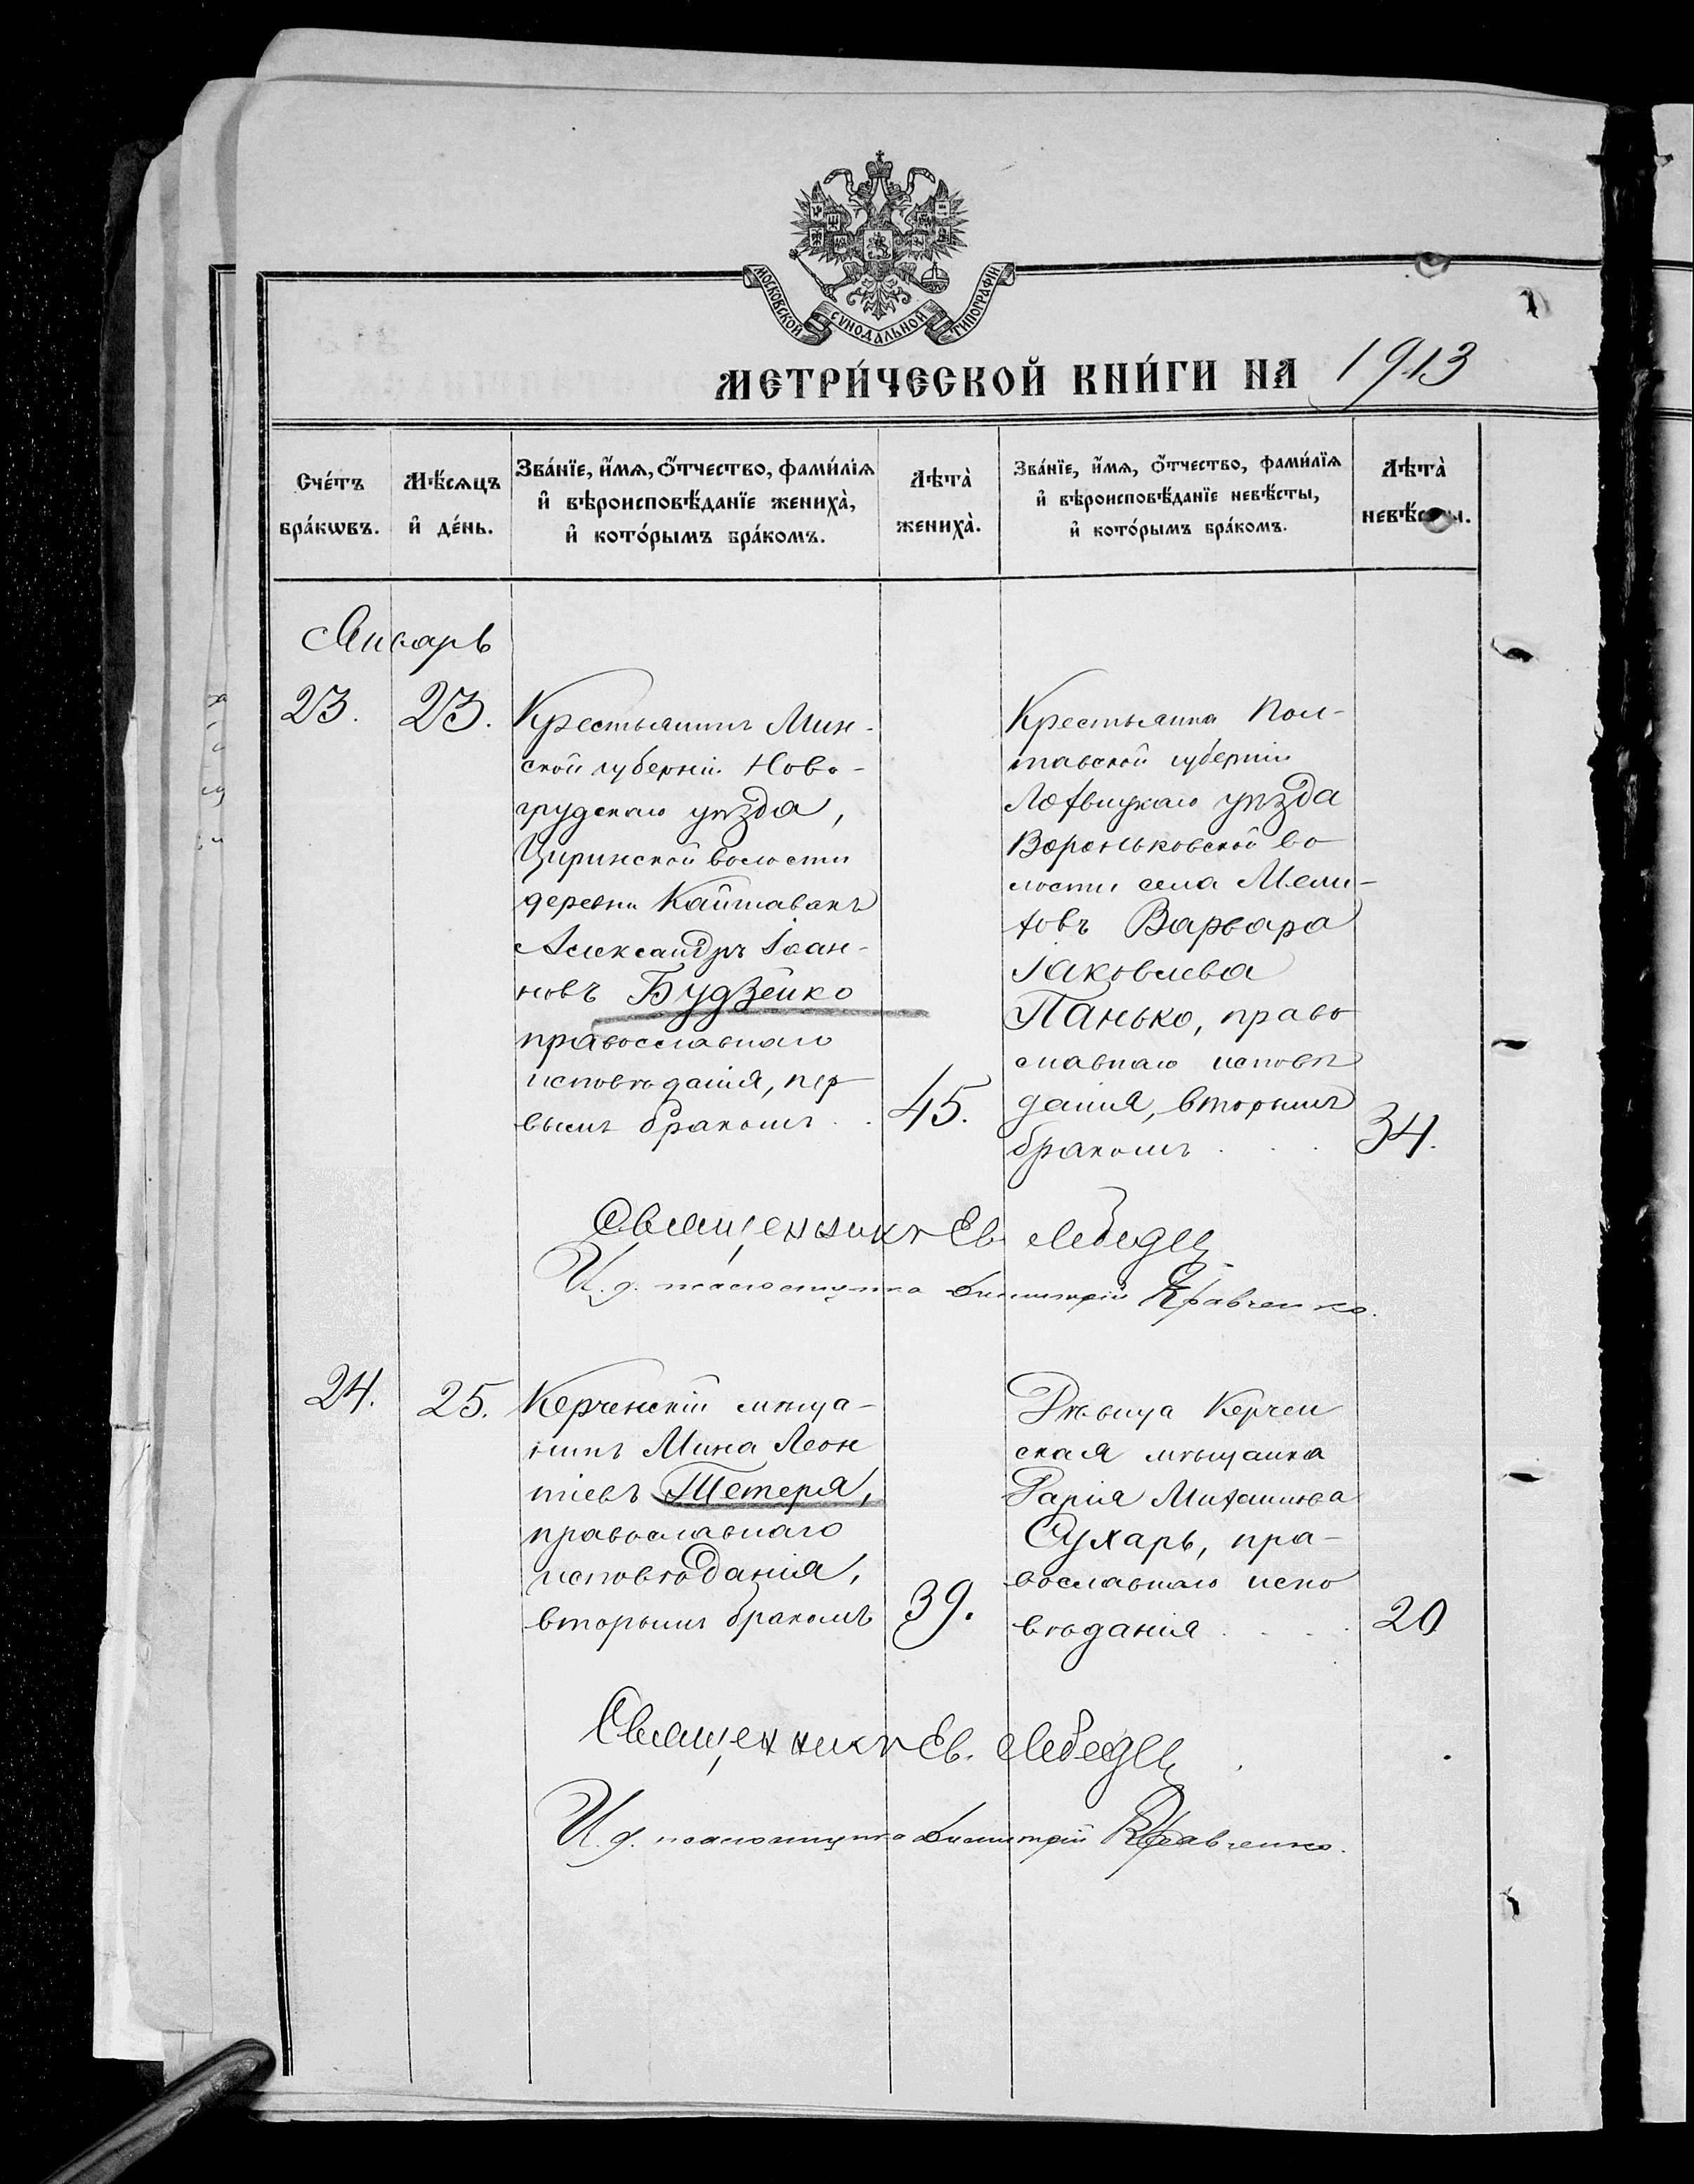 МОСКОВСКОЙ СѴНОДАЛЬНОЙ ТИПОГРАФІИ
МЕТРИ́ЧЕСКОЙ КНИ́ГИ НА 1913
Сче́тъ бра́кѡвъ.
Мѣ́сѧцъ и҆ де́нь.
Зва́нїе, и҆́мѧ, ѻ҆́тчество, фами́лїѧ
и҆ вѣроисповѣ́данїе жениха̀,
и҆ кото́рымъ бра́комъ.
Лѣта̀ жениха̀.
Зва́нїе, и҆́мѧ, ѻ҆́тчество, фами́лїѧ
и҆ вѣроисповѣ́данїе невѣ́сты,
и҆ кото́рымъ бра́комъ.
Лѣта̀ невѣ́сты.
Январь
23.
23.
Крестьянинъ Мин-
ской губерніи Ново-
грудскаго уѣзда,
Циринской волости
деревни
Александръ Іоан-
новъ Будзейко
православнаго
исповѣданія, пер
вымъ бракомъ . .
45.
Крестьянка Пол-
тавской губерніи
Лохвицкаго уѣзда
Вороньковской во
лости села Мели-
ховъ Варвара
Іаковлева
Панько, право
славнаго исповѣ
данія, вторымъ
бракомъ . . .
34.
Священникъ Ев. Лебедец
И. д. псаломщика Димитрій Кравченко.
24.
25.
Керченскій мѣща-
нинъ Мина Леон
тіевъ Тетеря,
православнаго
исповѣданія,
вторымъ бракомъ
39.
Дѣвица Керчен
ская мѣщанка
Дарія Михаилова
Сухарь, пра-
вославнаго испо
вѣданія . . . .
20
Священникъ Ев. Лебедец
И. д. псаломщика Димитрій Кравченко.